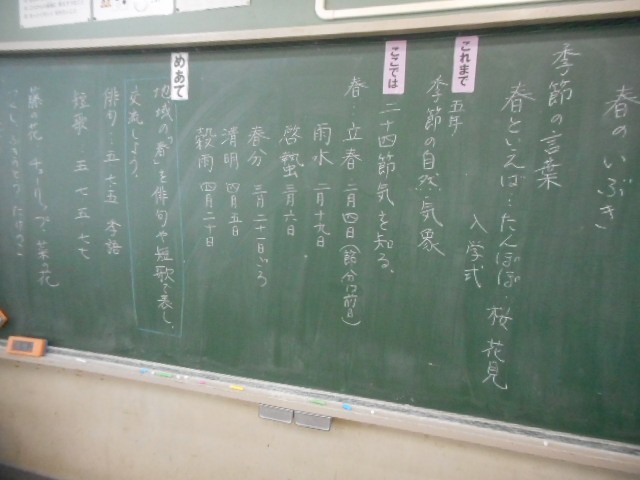 春のいぶき
季節の言葉
春といえば…たんぽぽ・桜 花見
入学式
これまで
五年
季節の自然、気象
ここでは
二十四節気を知る。
春・立春 二月四日(節分の前日)
雨水 二月十九日
啓蟄 三月六日
春分 三月二十一日ごろ
清明 四月五日
穀雨 四月二十日
めあて
地域の「春」を俳句や短歌で表し、
交流しよう。
俳句…五・七・五 季語
短歌…五七五七七
藤の花 チューリップ 菜の花
つくし